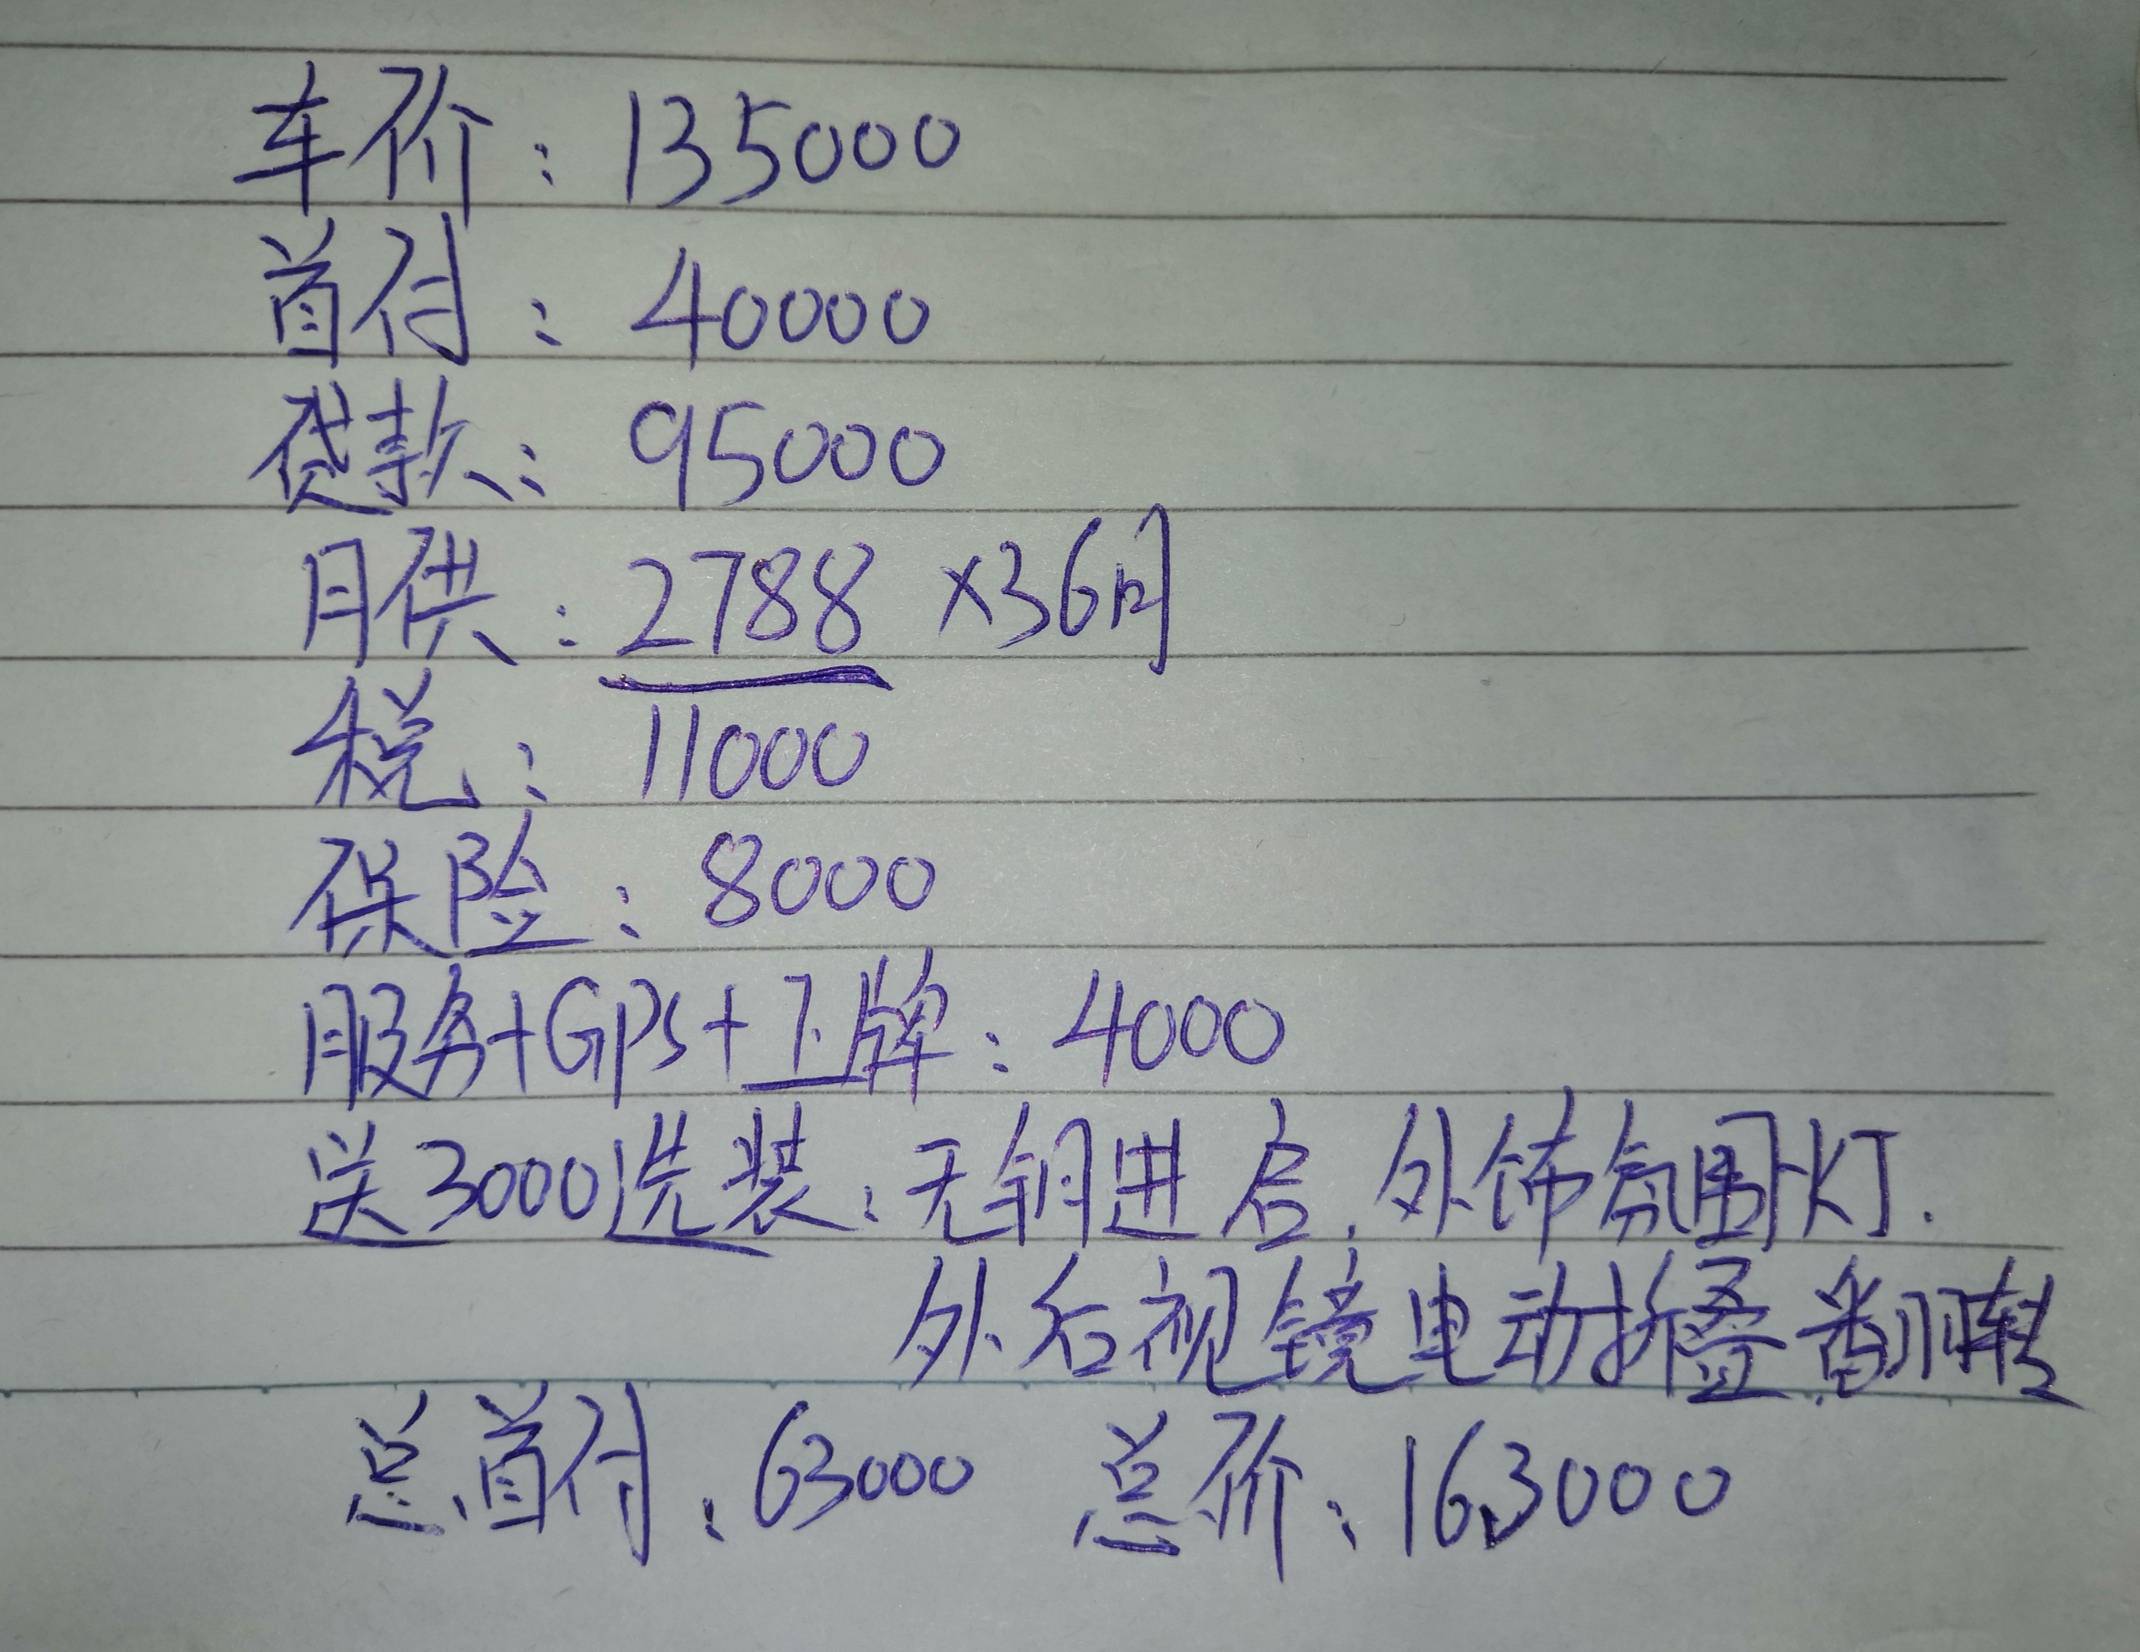 车价：135000
首付：40000
贷款：95000
月供：2788 ×36期
税：11000
保险：8000
服务+GPS+上牌：4000
送3000选装：无钥进启.外饰氛围灯.
外后视镜电动折叠翻转
总首付：63000 总价：163000